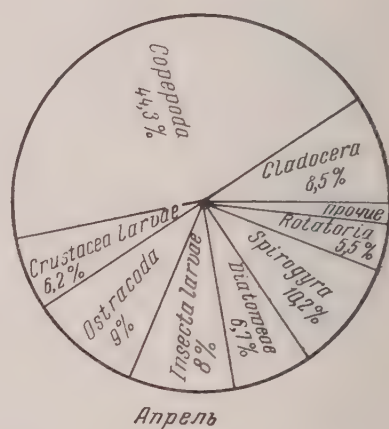 Copepoda
44,3%
Cladocera
8,5%
прочие
Rotatoria
5,5%
Spirogyra
10,2%
Diatomeae
6,7%
Insecta larvae
8%
Ostracoda
9%
Crustacea larvae
6,2%
Апрель